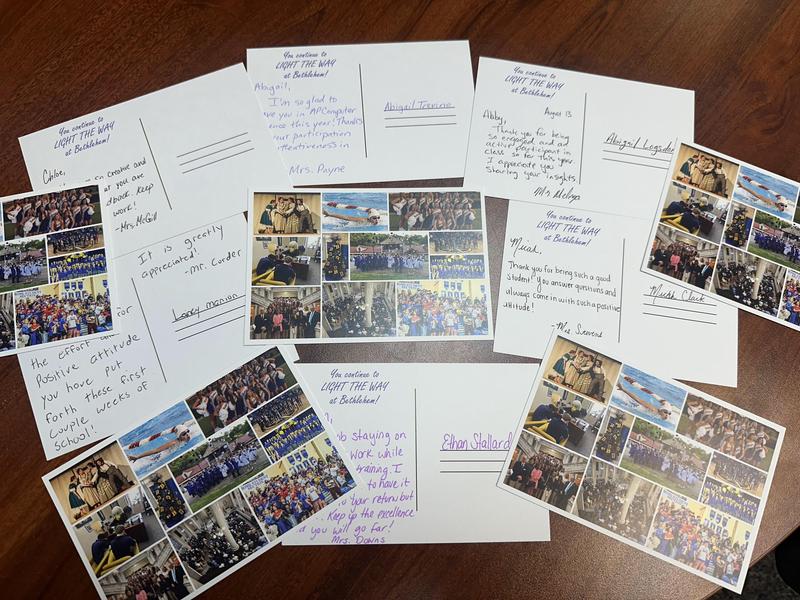 You continue to
LIGHT THE WAY
at Bethlehem!
Abigail,
I'm so glad to
you in AP Computer
this year! Thanks
your participation
attentiveness in
Mrs. Payne
Abigail
You continue to
LIGHT THE WAY
at Bethlehem!
Abby,
August 13
Thank you for being
so engaged and an
active participant in
class so far this year.
I appreciate you
sharing your insights.
Abigail Logsdon
You continue to
LIGHT THE WAY
at Bethlehem!
Chloe,
so creative and
you are
Keep
work!
-Mrs. McGill
It is greatly
appreciated!
-Mr. Corder
for
the effort
Positive attitude
you have put
forth these first
couple weeks of
school!
Laney
You continue to
LIGHT THE WAY
at Bethlehem!
Micah,
Thank you for being such a good
student! You answer questions and
always come in with such a positive
attitude!
Micah Clark
You continue to
LIGHT THE WAY
at Bethlehem!
staying on
work while
training. I
to have it
your return, but
Keep up the excellence
and you will go far!
Mrs. Downs
Ethan Stallard